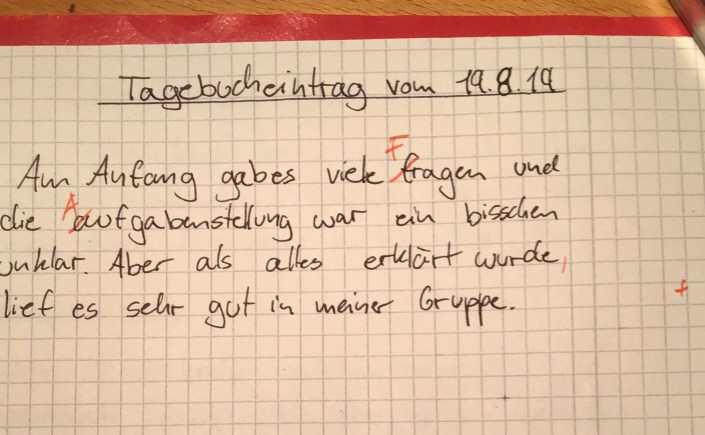 Tagebucheintrag vom 19.8.19
Am Anfang gabes viele Fragen und
die Aufgabenstellung war ein bisschen
unklar. Aber als alles erklärt wurde,
lief es sehr gut in meiner Gruppe.